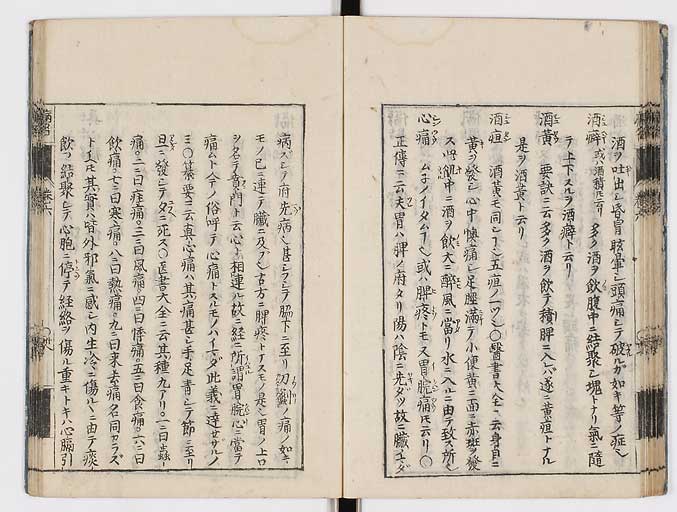 酒ヲ吐出シ昏冒眩暈シ頭痛シテ破ルガ如キ等ノ症也
酒癖 或ハ酒積トモ云リ 多ク酒ヲ飲腹中ニ結聚シ塊トナリ氣ニ隨
テ上下スルヲ酒癖ト云リ
酒黄 要訣ニ云多ク酒ヲ飲テ積脾ニ入レバ遂ニ黄疸トナル
是ヲ酒黄ト云リ
酒疸 酒黄モ同シ五疸ノ一ツ也○醫書大全ニ云身目ニ
黄ヲ發シ心中懊痛シ足脛滿テ小便黄ニ面ニ赤斑ヲ發
ス此飢中ニ酒ヲ飲大ニ醉風ニ當リ水ニ入ニ由テ致ス所也
心痛 ムネノイタム 或ハ脾疼トモス胃脘痛トモ云リ○
正傳ニ云夫胃ハ脾ノ府タリ陽ハ陰ニ先ダツ故ニ臓イマダ
病ズシテ府先病也甚シクシテ脇下ニ至リ刀劔ノ痛ノ如キ
モノ已ニ連テ臓ニ及ブ也古方ニ脾疼トナスモノ是也胃ノ上口
ヲ名テ賁門ト云心ト相連ル故ニ經ニ所謂胃脘心ニ當テ
痛ムト今ノ俗呼テ心痛トスルモノハイマダ此義ニ達セザルノ
ミ○纂要ニ云真心痛ハ其痛甚シ手足青シテ節ニ至リ
旦ニ發シテタニ死ス○医書大全ニ云其種九アリ○一ニ曰蟲
痛○二ニ曰疰痛○三ニ曰風痛○四ニ曰悸痛○五ニ曰食痛○六ニ曰
飲痛○七ニ曰寒痛○八ニ曰熱痛○九ニ曰來去痛名同カラズ
トイヘモ其實ハ皆外邪氣ニ感シ内生冷ニ傷ルヽニ由テ痰
飲ヲ結聚シテ心胞ニ停テ経絡ヲ傷ル重キトキハ心膈引